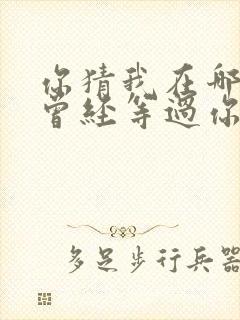 你猜我在哪
曾经等过你
多足步行兵器